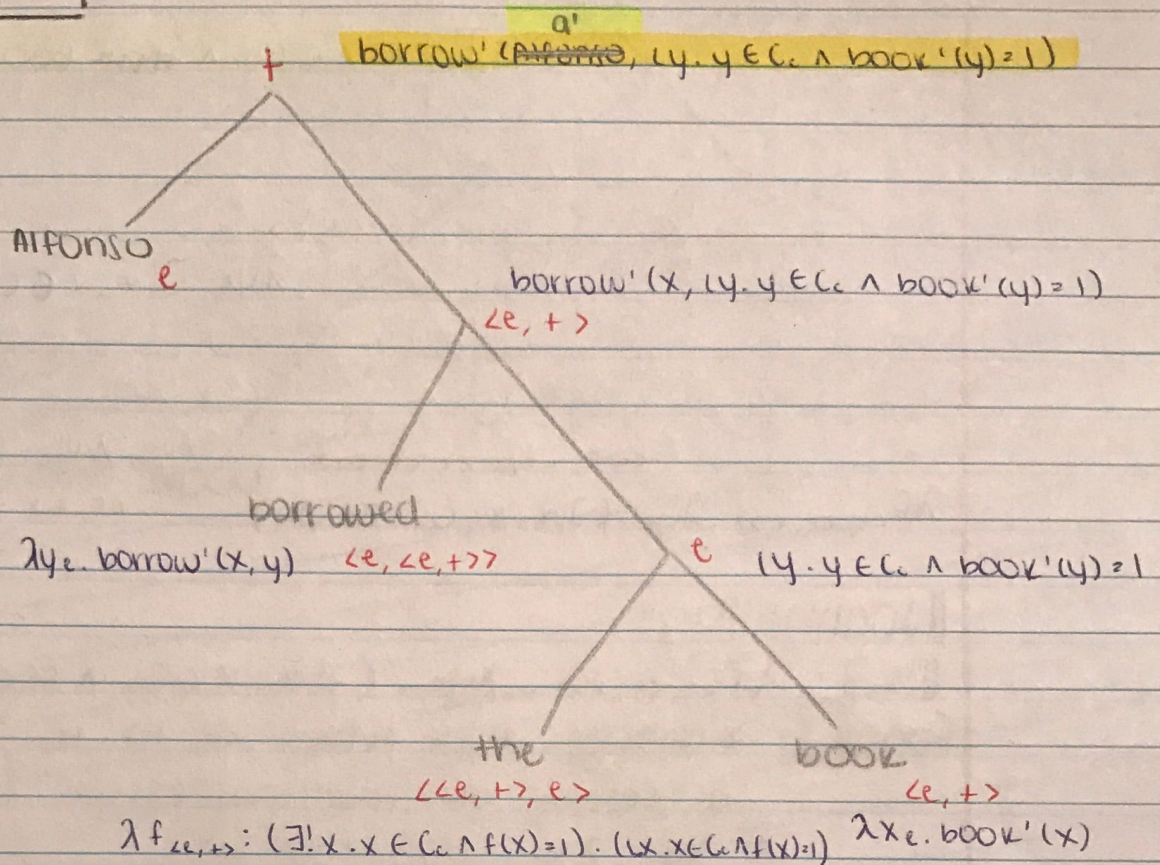 a'
t borrow'(Alfonso, ιy. y ∈ Cc ∧ book'(y)=1)
Alfonso
e
borrow'(x, ιy. y ∈ Cc ∧ book'(y)=1)
<e, t>
borrowed
λye. borrow'(x, y) <e, <e, t>> e ιy. y ∈ Cc ∧ book'(y)=1
the book
<<e, t>, e> <e, t>
λf<e, t>: (∃!x. x ∈ Cc ∧ f(x)=1). (ιx. x ∈ Cc ∧ f(x)=1) λxe. book'(x)